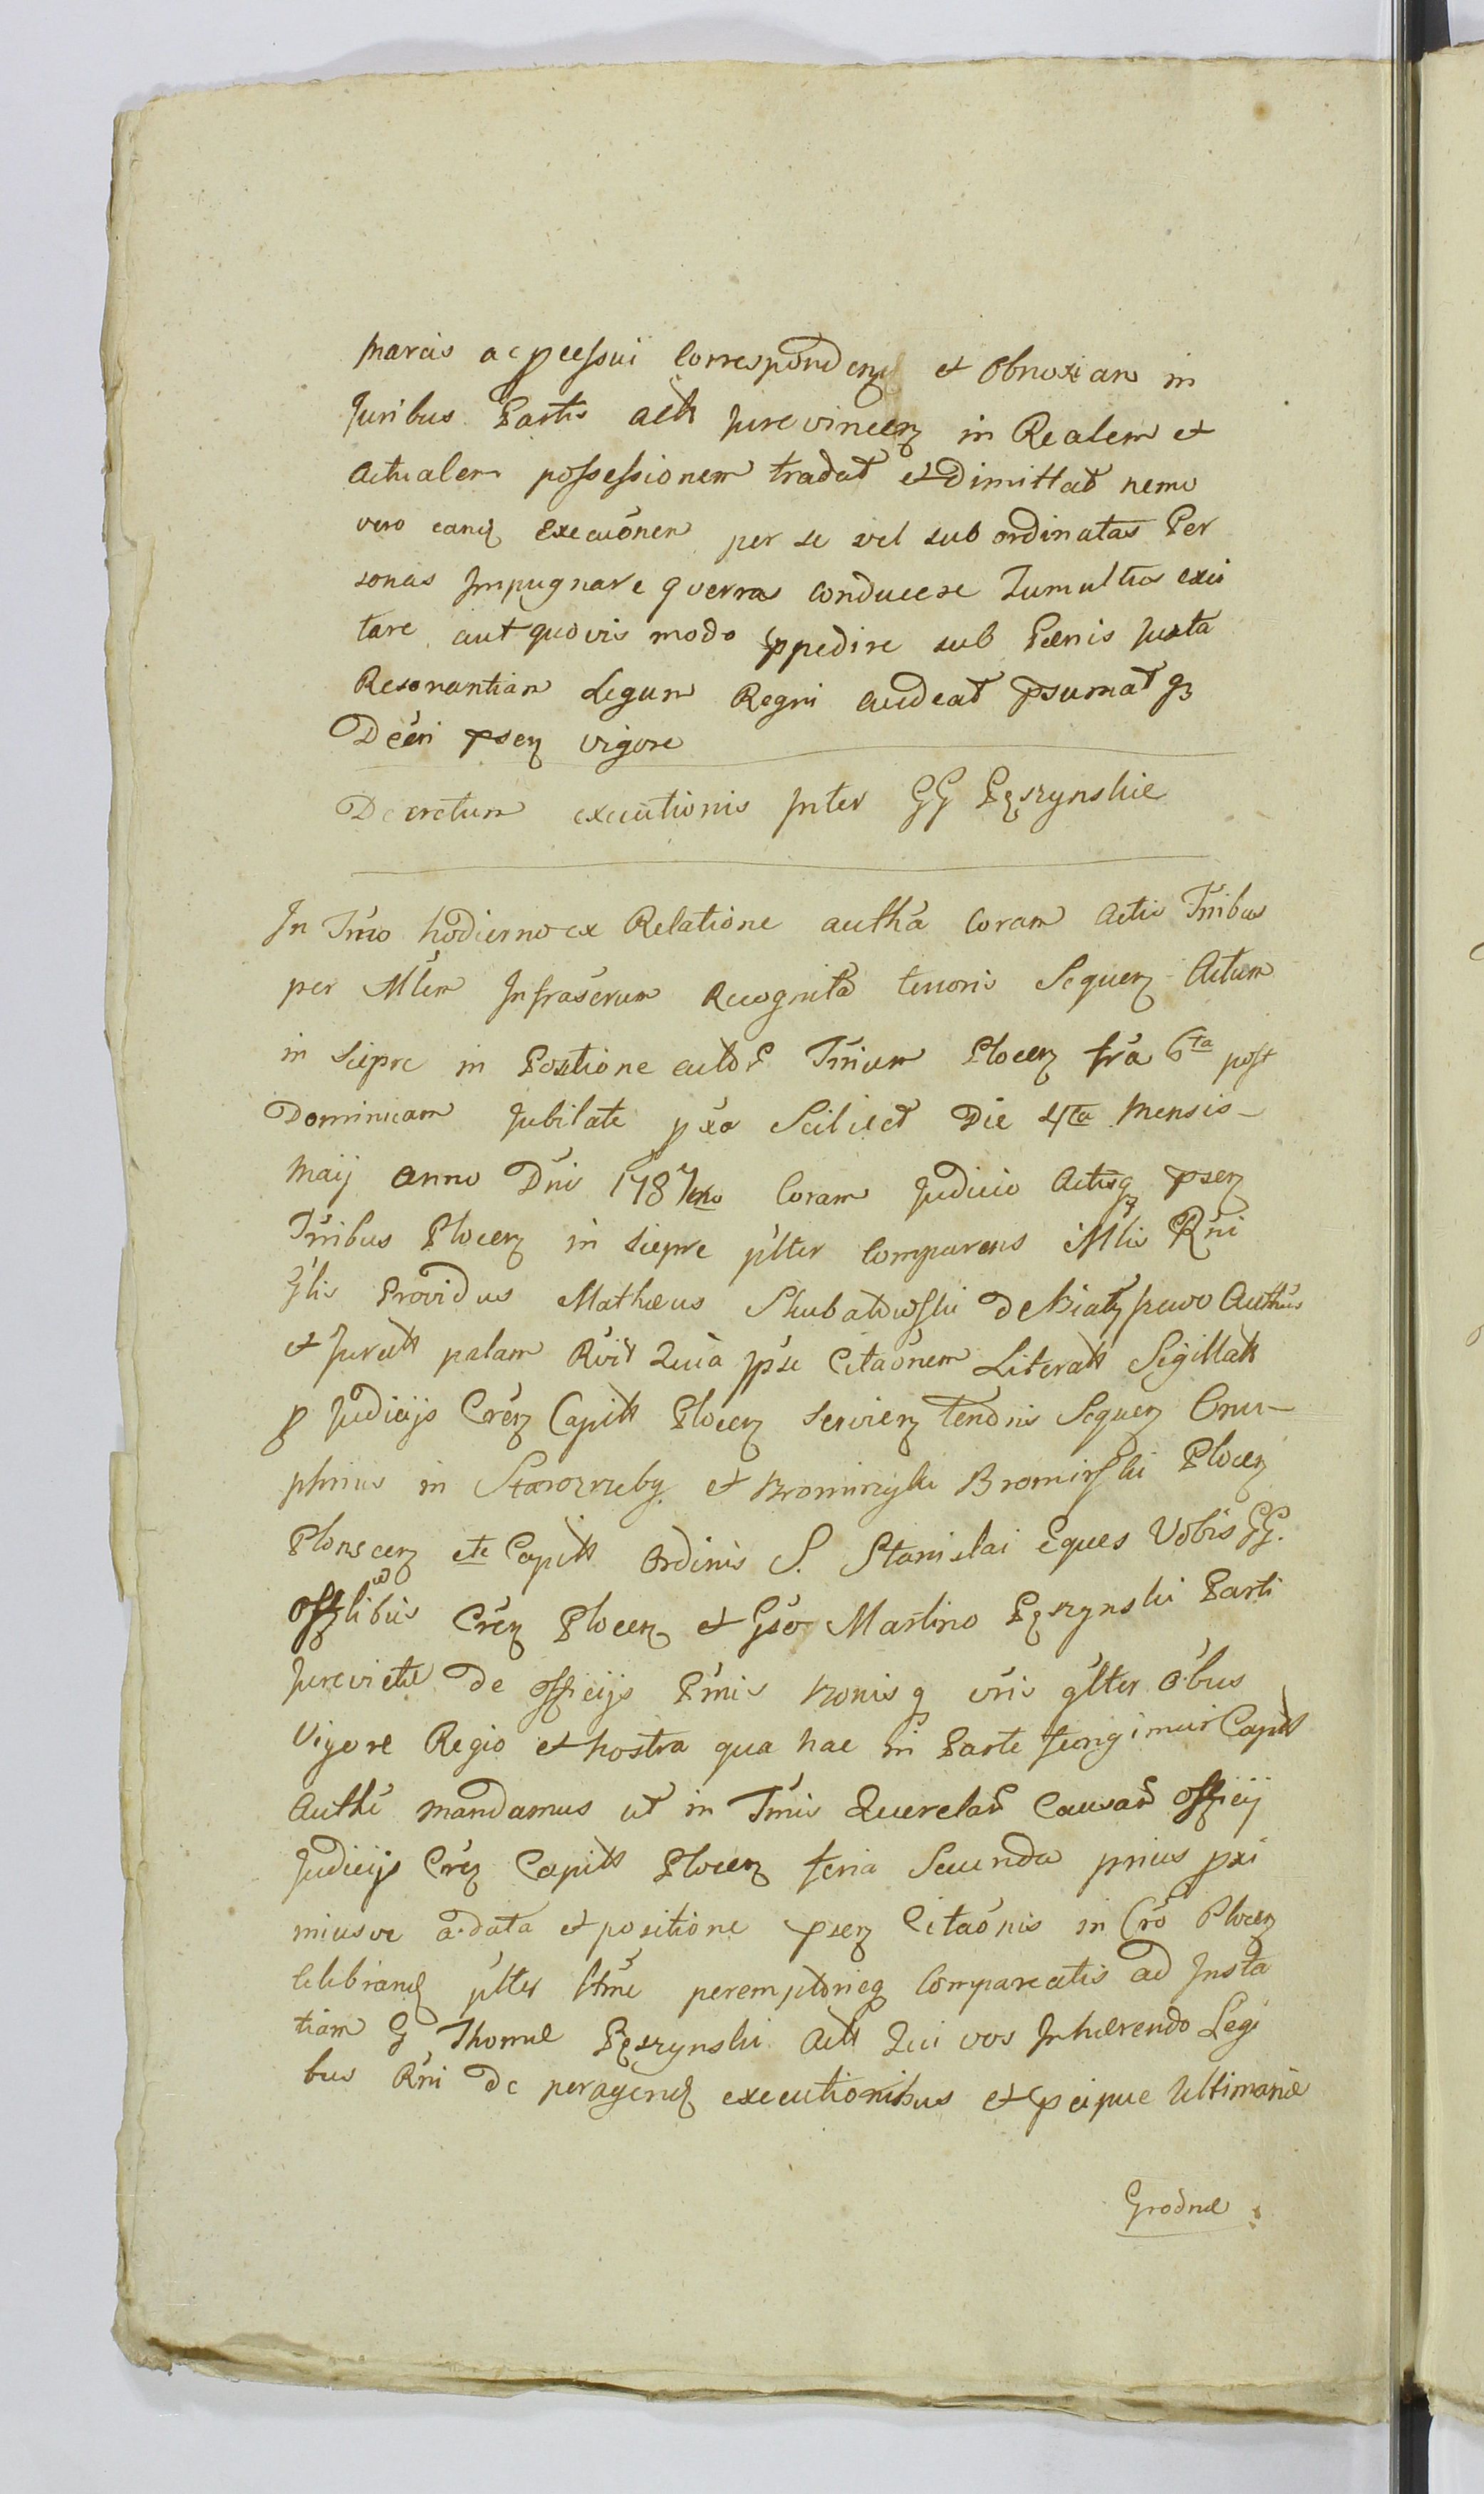 marcis ac pcessui Correspondenz et Obnoxiam in
Juribus Partis actt Jurevincenz in Realem et
Actualem possessionem tradat et Dimittat nemo
vero eand executionem per se vel subordinatas Per
sonas Impugnare guerras Conducere Tumultus exci
tare aut quovis modo Ippedire sub Pœnis Juxta
Resonantiam Legum Regni audeat psumat q3
Decri psen vigore
Decretum executionis Inter GG Pęszynskie
In Tmo hodierno ex Relatione autha Coram Actis Tmibus
per Mlem Infrascrum Recognita tenoris Sequen Actum
in Siepre in Positione actor Tmium Plocen fra 6ta post
Dominicam Jubilate pxa Scilicet Die 4ta Mensis –
Maij Anno Dni 1787mo Coram Judicio Actisq psen
Tmibus Plocen in Siepre plter Comparens Mlis Rni
Glis Providus Mathæus Skubatowski de Authus
et Juratt palam Rvit Quia Ipse Citaonem Literatt Sigillatt
p Judicijs Cren Capitt Plocen servien tenoris Sequen Onu –
phrius in Starozreby et Bromirzyk Bromirski Plocen
Plonscen etc Capitt Ordinis S. Stanislai Eques Vobis GG.
Offlibus Cren Plocen et Gso Martino Pęszynski Parti
Jurevictæ de officijs Pmis Bonisq vris glter oibus
Vigore Regio et Nostra qua hac in Parte fungimur Capitt
Authe mandamus ut in Tmis Querelar Causar Officij
Judicijs Cren Capitt Plocen feria Secunda prius pxi
miusve a data et positione psen Citaonis in Cro Plocen
Celebrand plter peremptorieq Compareatis ad Insta
tiam G Thomæ Pęszynski Actt Qui vos Inhærendo Legi
bus Rni de peragend executionibus et pcipue Ultimariæ
Grodnæ